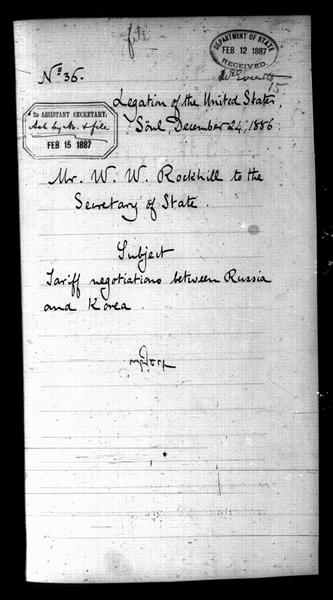 file
DEPARTMENT OF STATE
FEB 12 1887
RECEIVED.
Nº 36.
Legation of the United States,
Söul, December 24, 1886.
TO ASSISTANT SECRETARY.
Ack by No. & file
FEB 15 1887
15
Mr. W. W. Rockhill to the
Secretary of State.
Subject
Tariff negotiations between Russia
and Korea.